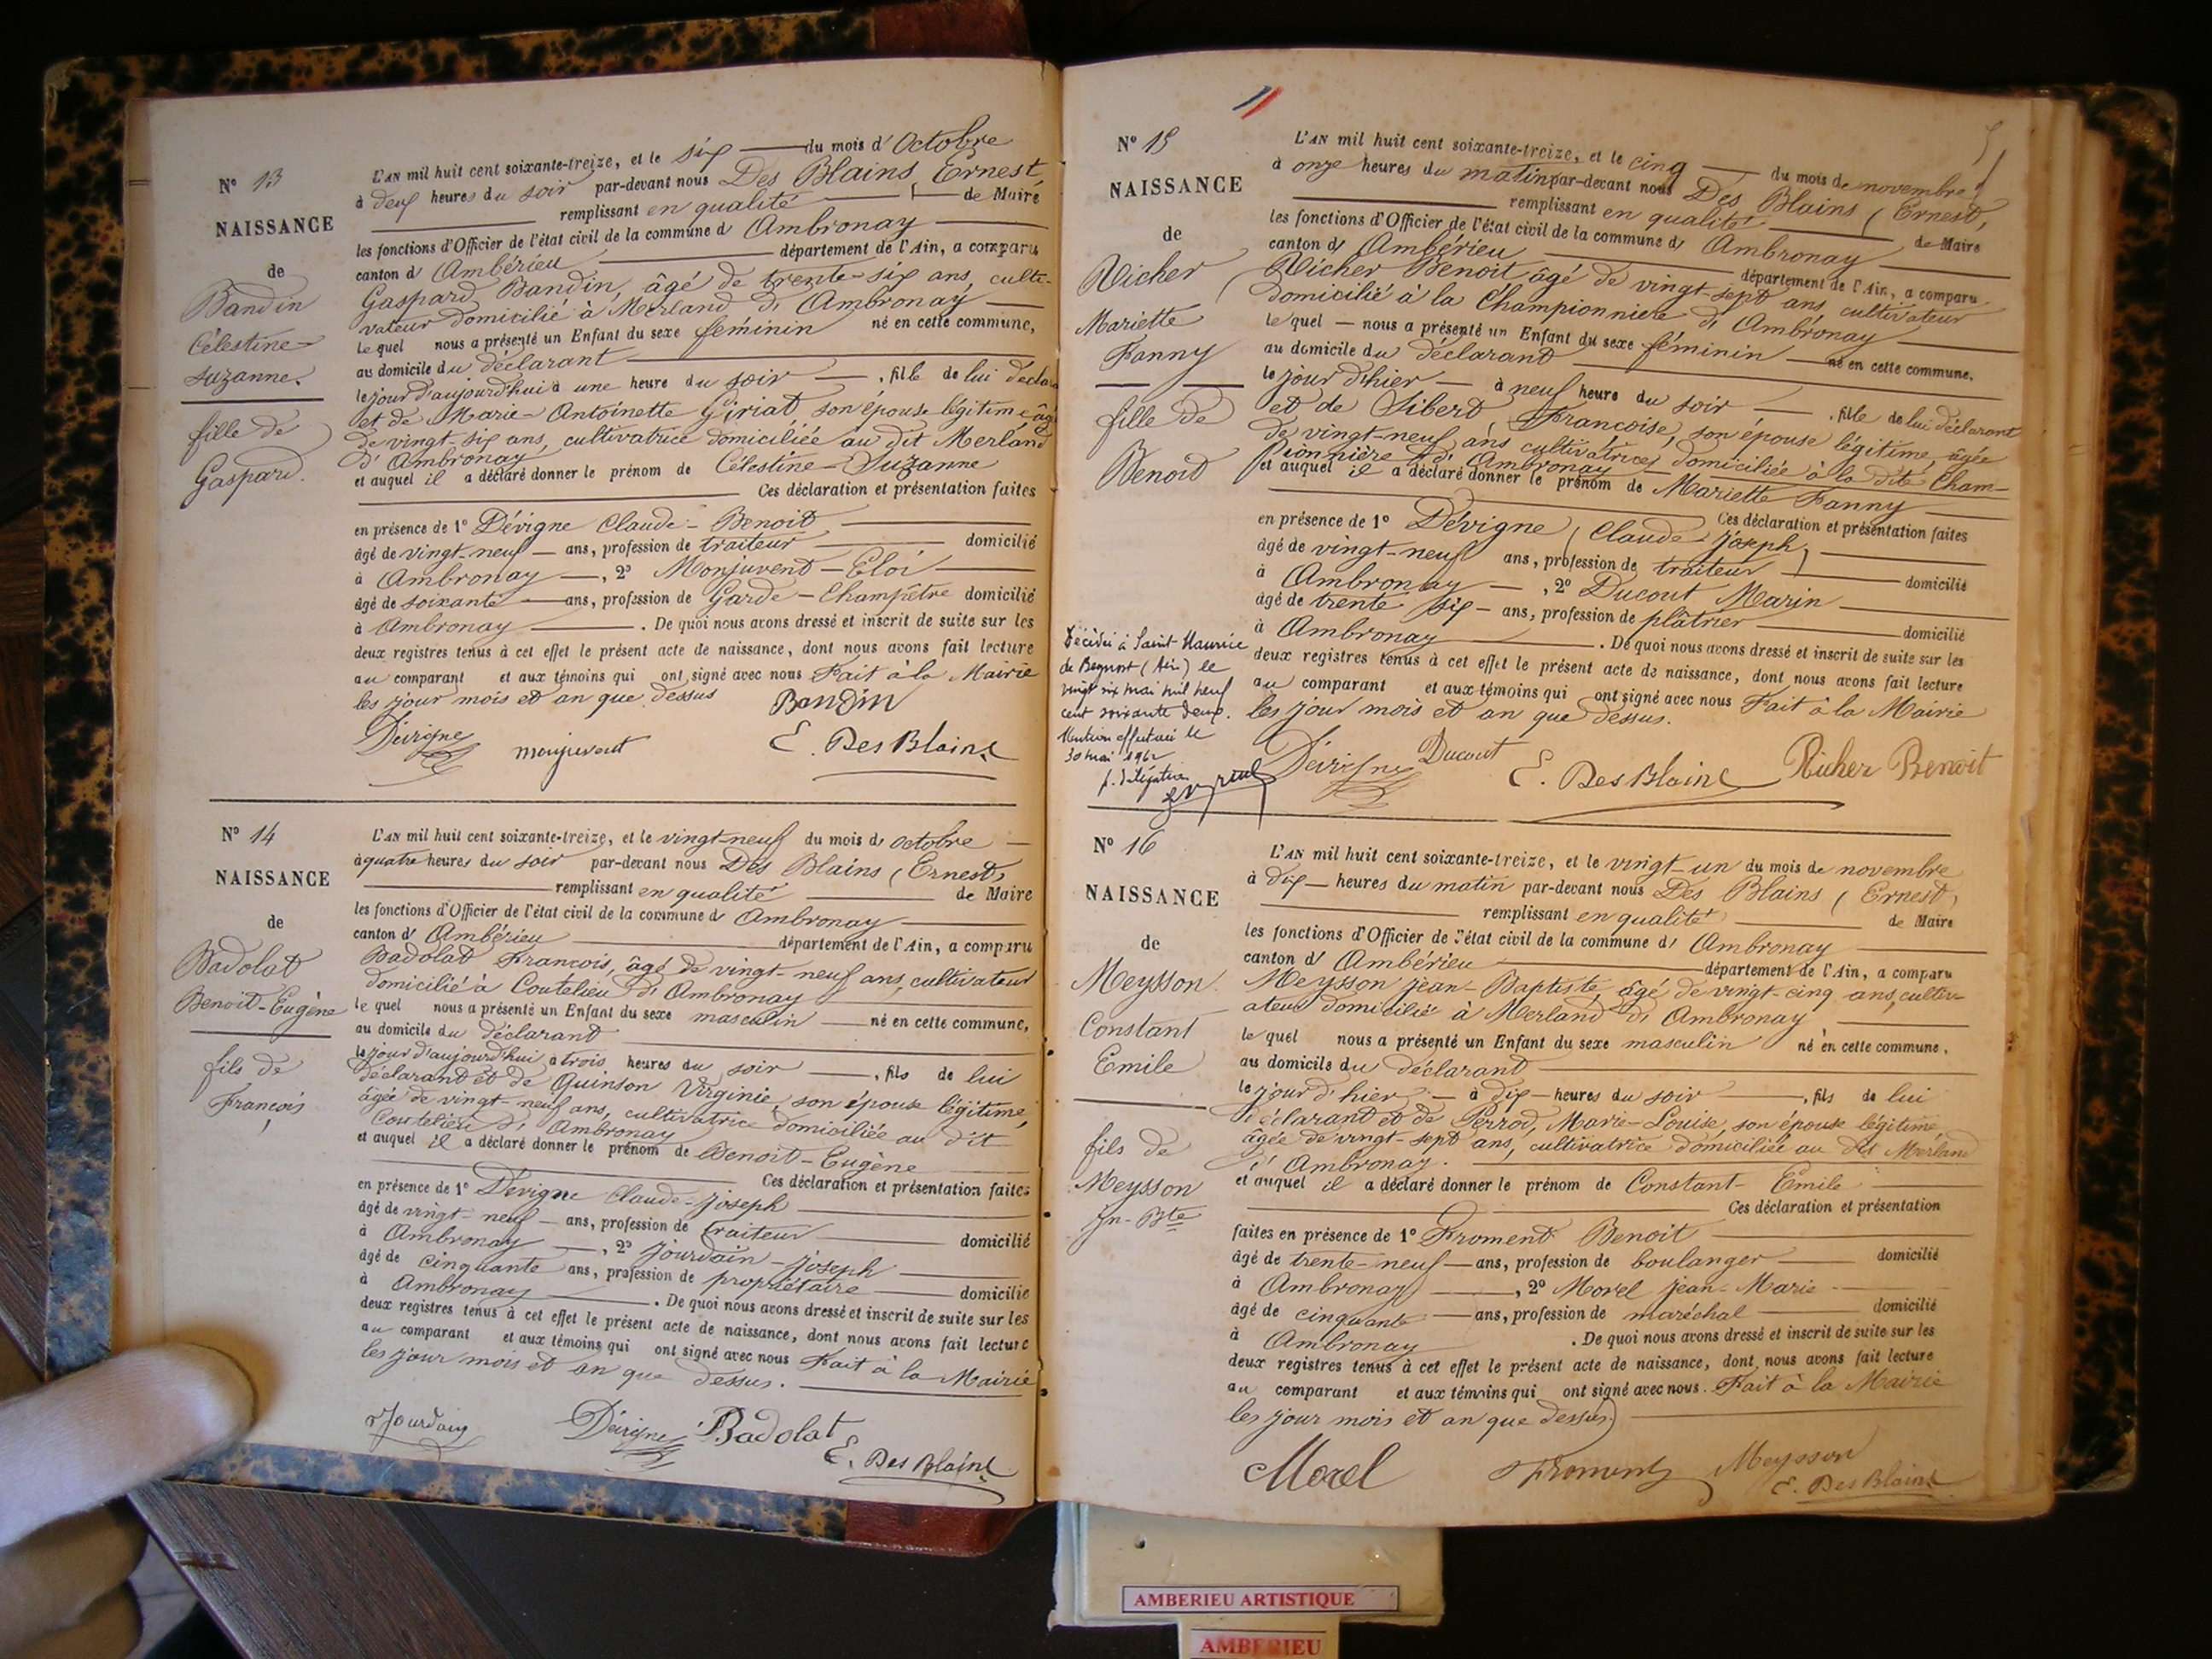 N° 13
NAISSANCE
de
Bandin
Célestine-
Suzanne.
fille de
Gaspard.
L'AN mil huit cent soixante-treize, et le six du mois d'Octobre
à deux heures du soir par-devant nous Des Blains (Ernest,
remplissant en qualité de Maire
les fonctions d'Officier de l'état civil de la commune d'Ambronay
canton d'Ambérieu département de l'Ain, a comparu
Gaspard Bandin, âgé de trente-six ans, culti-
vateur domicilié à Merland d'Ambronay
lequel nous a présenté un Enfant du sexe féminin né en cette commune,
au domicile du déclarant
le jour d'aujourd'hui à une heure du soir , fille de lui déclar
et de Marie-Antoinette Giriat son épouse légitime âg
de vingt-six ans, cultivatrice domiciliée au dit Merland
d'Ambronay
et auquel il a déclaré donner le prénom de Célestine-Suzanne
Ces déclaration et présentation faites
en présence de 1° Dévigne Claude-Benoit
âgé de vingt-neuf ans, profession de traiteur domicilié
à Ambronay , 2° Monjuvent-Eloi
âgé de soixante ans, profession de Garde-Champêtre domicilié
à Ambronay . De quoi nous avons dressé et inscrit de suite sur les
deux registres tenus à cet effet le présent acte de naissance, dont nous avons fait lecture
au comparant et aux témoins qui ont signé avec nous Fait à la Mairie
les jour mois et an que dessus Bandin
Dévigne monjuvent E. Des Blains
N° 14
NAISSANCE
de
Badolat
Benoit-Eugène
fils de
François
L'AN mil huit cent soixante-treize, et le vingt-neuf du mois de octobre
à quatre heures du soir par-devant nous Des Blains (Ernest,
remplissant en qualité de Maire
les fonctions d'Officier de l'état civil de la commune d'Ambronay
canton d'Ambérieu département de l'Ain, a comparu
Badolat François, âgé de vingt-neuf ans, cultivateur
domicilié à Coutelieu d'Ambronay
le quel nous a présenté un Enfant du sexe masculin né en cette commune,
au domicile du déclarant
le jour d'aujourd'hui à trois heures du soir , fils de lui
déclarant et de Quinson Virginie, son épouse légitime,
âgée de vingt-neuf ans, cultivatrice domiciliée au dit
Coutelieu d'Ambronay
et auquel il a déclaré donner le prénom de Benoit-Eugène
Ces déclaration et présentation faites
en présence de 1° Dévigne Claude-Joseph
âgé de vingt-neuf ans, profession de traiteur domicilié
à Ambronay , 2° Jourdain-Joseph
âgé de cinquante ans, profession de propriétaire domicilié
à Ambronay . De quoi nous avons dressé et inscrit de suite sur les
deux registres tenus à cet effet le présent acte de naissance, dont nous avons fait lecture
au comparant et aux témoins qui ont signé avec nous Fait à la Mairie
les jour mois et an que dessus.
Jourdain Dévigne Badolat E. Des Blains
N° 15
NAISSANCE
de
Richer
Mariette
Fanny
fille de
Benoit
L'AN mil huit cent soixante-treize, et le cinq du mois de novembre
à onze heures du matin par-devant nous Des Blains (Ernest,
remplissant en qualité de Maire
les fonctions d'Officier de l'état civil de la commune d'Ambronay
canton d'Ambérieu département de l'Ain, a comparu
Richer Benoit âgé de vingt-sept ans, cultivateur
domicilié à la Championnière d'Ambronay
lequel nous a présenté un Enfant du sexe féminin né en cette commune,
au domicile du déclarant
le jour d'hier à neuf heure du soir , fille de lui déclarant
et de Sibert Françoise, son épouse légitime, âgée
de vingt-neuf ans cultivatrice, domiciliée à la dite Cham-
pionnière d'Ambronay
et auquel il a déclaré donner le prénom de Mariette Fanny
Ces déclaration et présentation faites
en présence de 1° Dévigne (Claude-Joseph)
âgé de vingt-neuf ans, profession de traiteur domicilié
à Ambronay , 2° Ducout Marin
âgé de trente six ans, profession de plâtrier domicilié
à Ambronay . De quoi nous avons dressé et inscrit de suite sur les
deux registres tenus à cet effet le présent acte de naissance, dont nous avons fait lecture
au comparant et aux témoins qui ont signé avec nous Fait à la Mairie
les jour mois et an que dessus.
Dévigne Ducout E. Des Blains Richer Benoit
Décédée à Saint-Maurice
de Beynost (Ain) le
vingt six mai mil neuf
cent soixante deux.
Mention effectuée le
30 mai 1962
p. délégation
N° 16
NAISSANCE
de
Meysson
Constant
Emile
fils de
Meysson
Jn-Bte
L'AN mil huit cent soixante-treize, et le vingt-un du mois de novembre
à dix heures du matin par-devant nous Des Blains (Ernest)
remplissant en qualité de Maire
les fonctions d'Officier de l'état civil de la commune d'Ambronay
canton d'Ambérieu département de l'Ain, a comparu
Meysson Jean-Baptiste, âgé de vingt-cinq ans, cultiv-
ateur domicilié à Merland d'Ambronay
le quel nous a présenté un Enfant du sexe masculin né en cette commune,
au domicile du déclarant
le jour d'hier à dix heures du soir , fils de lui
déclarant et de Perrod, Marie-Louise, son épouse légitime
âgée de vingt-sept ans, cultivatrice domiciliée au dit Merland
d'Ambronay.
et auquel il a déclaré donner le prénom de Constant-Emile
Ces déclaration et présentation
faites en présence de 1° Froment Benoit
âgé de trente-neuf ans, profession de boulanger domicilié
à Ambronay , 2° Morel Jean-Marie
âgé de cinquante ans, profession de maréchal domicilié
à Ambronay . De quoi nous avons dressé et inscrit de suite sur les
deux registres tenus à cet effet le présent acte de naissance, dont nous avons fait lecture
au comparant et aux témoins qui ont signé avec nous. Fait à la Mairie
les jour mois et an que dessus
Morel Froment Meysson
E. Des Blains
AMBERIEU ARTISTIQUE
AMBERIEU